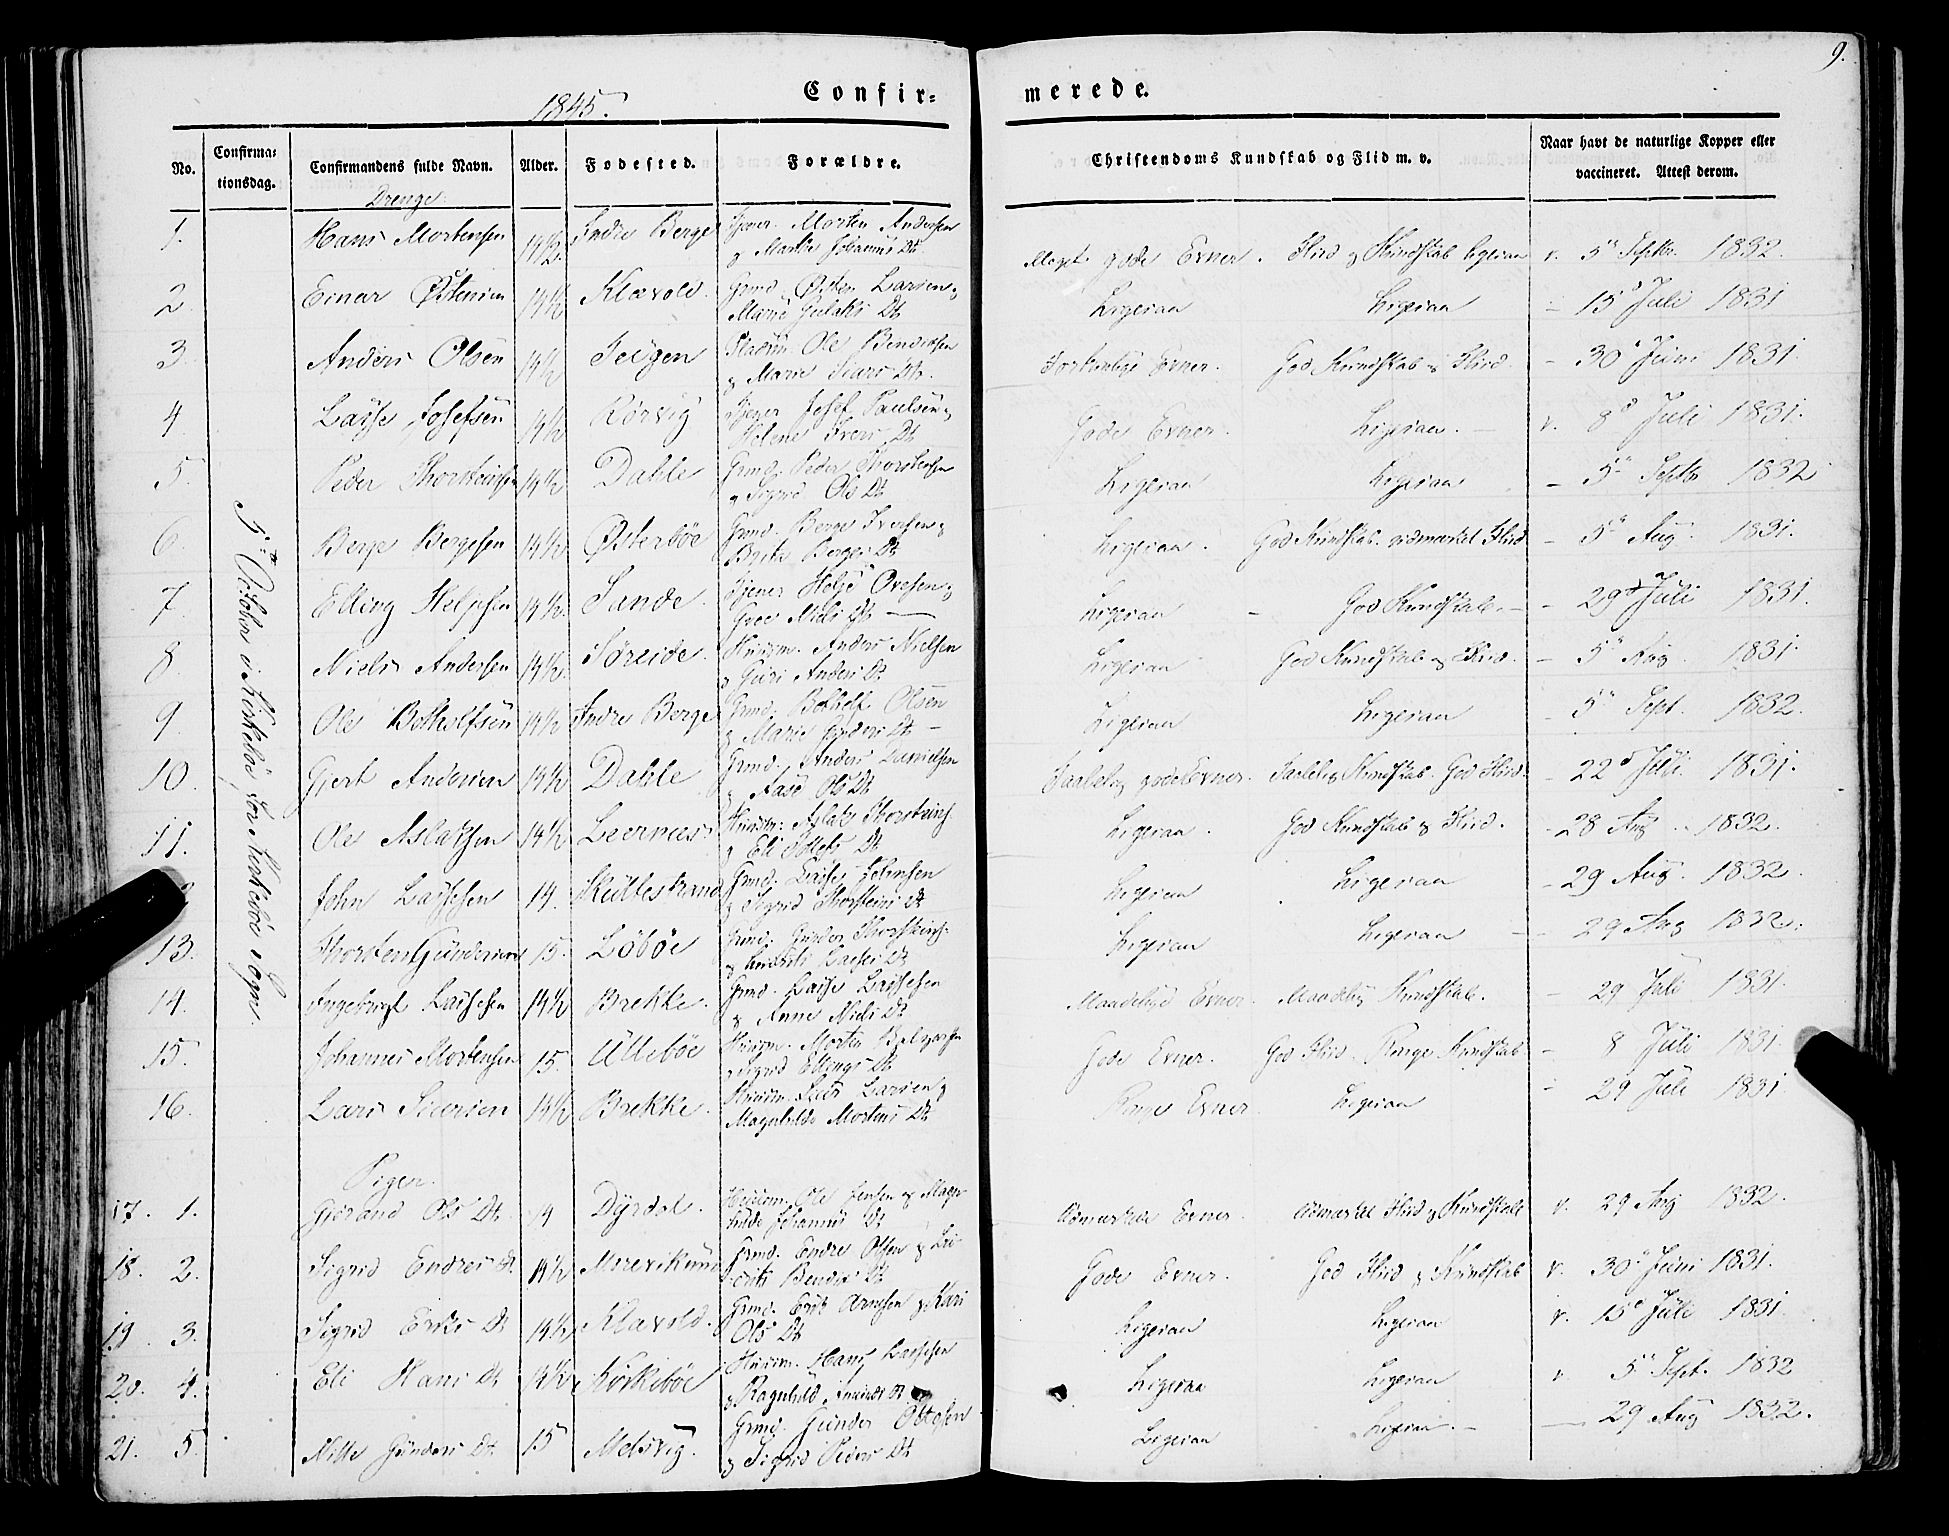 9.
1845.
Confir-
merede.
No.
Confirma-
tionsdag.
Confirmandens fulde Navn.
Alder.
Fødested.
Forældre.
Christendoms Kundskab og Flid m. v.
Naar havt de naturlige Kopper eller
vaccineret. Attest derom.
Drenge.
5te October i Kirkebøe for Kirkebøe Sogn.
1. Hans Mortensen 14 1/2 Indre Berge Tjener. Morten Andersen
og Martha Johannes Dt. Meget gode Evner. Flid og Kundskab ligesaa v. 5 Septbr 1832.
2 Einar Østensen 14 1/2 Klævold. Grmd. Østen Larsen og
Marie Dt Ligesaa Ligesaa - 15 Juli 1831
3 Anders Olsen 14 1/2 Teigen Pladsm. Ole Bendixsen
og Marie Dtr. Gode Kundskab og Flid. - 30 Juni 1831.
4 Lasse Josefsen 14 1/2 Rørvig Tjener Josef Paulsen og
Helene Ivers Dt Gode Evner. Ligesaa. v. 8 Juli 1831.
5. Peder Thorsteinsen 14 1/2 Dahle Grmd. Peder Thorstensen
og Sigrid Ols Dt Ligesaa Ligesaa - 5 Septbr 1832
6 Berge Bergesen 14 1/2 Østerbøe Grmd. Berge Iversen og
Brita Berges Dt Ligesaa. God Kundskab. udmærket Flid - 5 Aug. 1831.
7 Elling Helgesen 14 1/2. Sande. Tjener Helge Ovesen og
Niels Dt Ligesaa - God Kundskab. - 29 Juli 1831.
8 Niels Andersen 14 1/2. Søreide. Huusm. Anders Nielsen
og Guri Anders Dt Ligesaa God Kundskab og Flid. - 5 Aug. 1831.
9 Ole Botholfsen 14 1/2 Indre Berge Grmd. Botholf Olsen
og Marie Dt Ligesaa Ligesaa - 5 Sept. 1832.
10 Gjert Andersen 14 1/2 Dahle Grmd. Anders Danielsen
og Aase Ols Dt Taalelig gode Evner. Taalelig Kundskab. God Flid. - 22 Juli. 1831.
11. Ole Aslaksen 14 1/2 Leernæs Huusm. Aslak Thorsteins.
og Eli Dt Ligesaa. God Kundskab og Flid. - 28 Aug 1832.
John Lassesen 14. Kullestrand Grmd. Lasse Johnsen
og Sigrid Thorsteins Dt Ligesaa Ligesaa - 29 Aug. 1832.
13. Thorsten Gundersen 15. Løbøe Grmd. Gunder Thorsteins.
og Lasses Dt Ligesaa Ligesaa - 29 Aug 1832.
14. Ingebrigt Lassesen 14 1/2 Brekke. Grmd. Lasse Lassesen
og Anne Niels Dt Maadelige Evner. Maadelig Kundskab. - 29 Juli 1831.
15. Johannes Mortensen 15. Ullebøe Huusm. Morten
og Sigrid Ellings Dt Gode Evner. God Flid. Ringe Kundskab - 8 Juli 1831.
16. Lars Siursen 14 1/2 Brekke. Huusm. Siur Larsen og
Magnhilde Mortens Dt Ringe Evner. Ligesaa - 29 Juli 1831
Piger.
17. 1. Gjørand Ols Dt. 14 Dyrdal. Huusm. Ole Jensen og
Johannes Dt Udmærkede Evner. udmærket Flid og Kundskab v. 29 Aug 1832.
18. 2. Sigrid Endres Dt. 14 1/2 Grmd. Endre Olsen og
Bendix Dt Gode Evner. God Flid og Kundskab v. 30 Juni 1831.
19 3. Sigrid Eriks Dt 14 1/2 Klævold. Grmd. Erik Arnesen og Kari
Ols Dt Ligesaa Ligesaa v. 15 Juli 1831.
20. 4. Eli Hans Dt 14 1/2 Kirkebøe Huusm. Hans Lassesen
og Ragnhild Dt Ligesaa Ligesaa v. 5 Sept. 1832
21. 5. Mette Gunders Dt 15 Melsvig. Grmd. Gunder Ottesen
og Sigrid Peders Dt Ligesaa Ligesaa. - 29 Aug 1832.